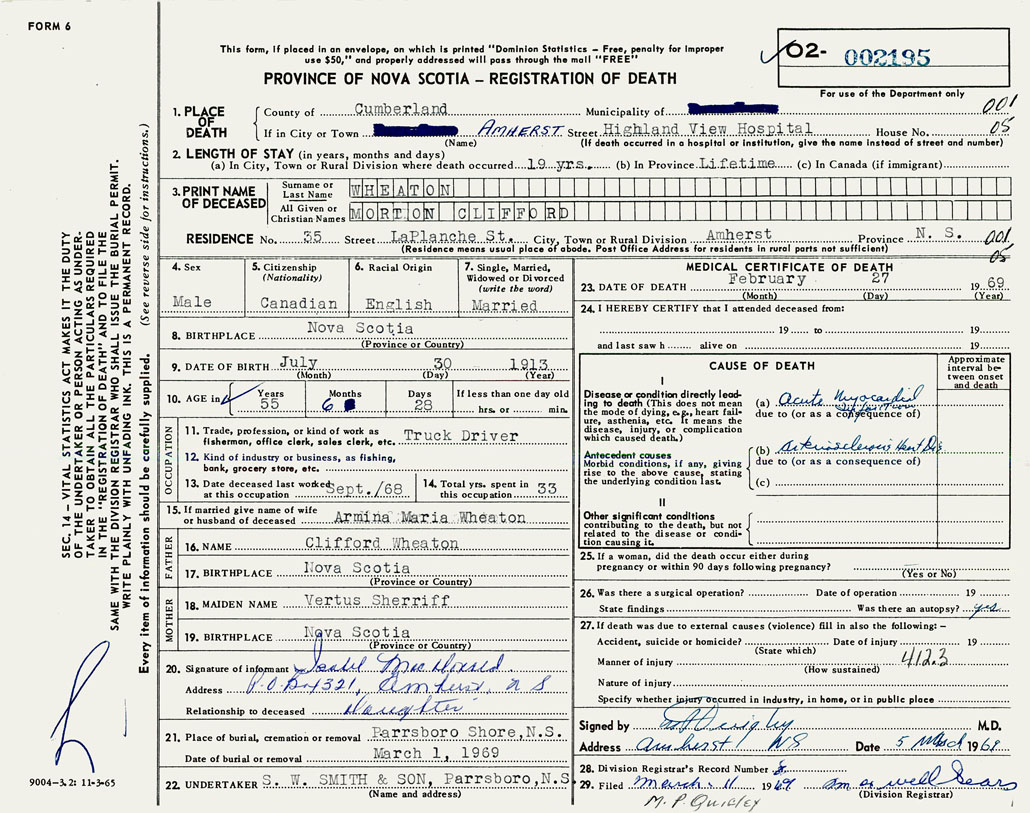 FORM 6
This form, if placed in an envelope, on which is printed "Dominion Statistics – Free, penalty for improper
use $50," and properly addressed will pass through the mail "FREE"
PROVINCE OF NOVA SCOTIA – REGISTRATION OF DEATH
O2- 002195
For use of the Department only
1. PLACE OF DEATH
County of Cumberland Municipality of 001
If in City or Town AMHERST Street Highland View Hospital House No. 05
(Name) (If death occurred in a hospital or institution, give the name instead of street and number)
2. LENGTH OF STAY (in years, months and days)
(a) In City, Town or Rural Division where death occurred 19 yrs. (b) In Province Lifetime (c) In Canada (if immigrant)
3. PRINT NAME OF DECEASED
Surname or Last Name WHEATON
All Given or Christian Names MORTON CLIFFORD
RESIDENCE No. 35 Street LaPlanche St. City, Town or Rural Division Amherst Province N. S. 001
(Residence means usual place of abode. Post Office Address for residents in rural parts not sufficient) 05
4. Sex
Male
5. Citizenship
(Nationality)
Canadian
6. Racial Origin
English
7. Single, Married,
Widowed or Divorced
(write the word)
Married
8. BIRTHPLACE Nova Scotia
(Province or Country)
9. DATE OF BIRTH July 30 1913
(Month) (Day) (Year)
10. AGE in Years Months Days If less than one day old
55 6 28 hrs. or min.
OCCUPATION
11. Trade, profession, or kind of work as
fisherman, office clerk, sales clerk, etc. Truck Driver
12. Kind of industry or business, as fishing,
bank, grocery store, etc.
13. Date deceased last worked
at this occupation Sept./68
14. Total yrs. spent in
this occupation 33
15. If married give name of wife
or husband of deceased Armina Maria Wheaton
FATHER
16. NAME Clifford Wheaton
17. BIRTHPLACE Nova Scotia
(Province or Country)
MOTHER
18. MAIDEN NAME Vertus Sherriff
19. BIRTHPLACE Nova Scotia
(Province or Country)
20. Signature of informant Isabel
Address P.O. Box 1321, Amherst, N S
Relationship to deceased Daughter
21. Place of burial, cremation or removal Parrsboro Shore, N.S.
Date of burial or removal March 1, 1969
22. UNDERTAKER S. W. SMITH & SON, Parrsboro, N.S
(Name and address)
MEDICAL CERTIFICATE OF DEATH
23. DATE OF DEATH February 27 1969
(Month) (Day) (Year)
24. I HEREBY CERTIFY that I attended deceased from:
19 to 19
and last saw h alive on 19
CAUSE OF DEATH
Approximate
interval be-
tween onset
and death
I
Disease or condition directly lead-
ing to death (This does not mean
the mode of dying, e.g., heart fail-
ure, asthenia, etc. It means the
disease, injury, or complication
which caused death.)
(a) Acute Myocardial
Infarction
due to (or as a consequence of)
Antecedent causes
Morbid conditions, if any, giving
rise to the above cause, stating
the underlying condition last.
(b) Arteriosclerosis Heart Dis
due to (or as a consequence of)
(c)
II
Other significant conditions
contributing to the death, but not
related to the disease or condi-
tion causing it.
25. If a woman, did the death occur either during
pregnancy or within 90 days following pregnancy?
(Yes or No)
26. Was there a surgical operation? Date of operation 19
State findings Was there an autopsy? yes
27. If death was due to external causes (violence) fill in also the following: –
Accident, suicide or homicide? Date of injury 19
(State which)
Manner of injury 412.3
(How sustained)
Nature of injury
Specify whether injury occurred in industry, in home, or in public place
Signed by Quigley M.D.
Address Amherst NS Date 5 March 1969
28. Division Registrar's Record Number
29. Filed March 11 1969
(Division Registrar)
M. P. Quigley
SEC. 14 – VITAL STATISTICS ACT MAKES IT THE DUTY
OF THE UNDERTAKER OR PERSON ACTING AS UNDER-
TAKER TO OBTAIN ALL THE PARTICULARS REQUIRED
IN THE "REGISTRATION OF DEATH" AND TO FILE THE
SAME WITH THE DIVISION REGISTRAR WHO SHALL ISSUE THE BURIAL PERMIT.
WRITE PLAINLY WITH UNFADING INK. THIS IS A PERMANENT RECORD.
Every item of information should be carefully supplied. (See reverse side for instructions.)
9004–3.2: 11-3-65